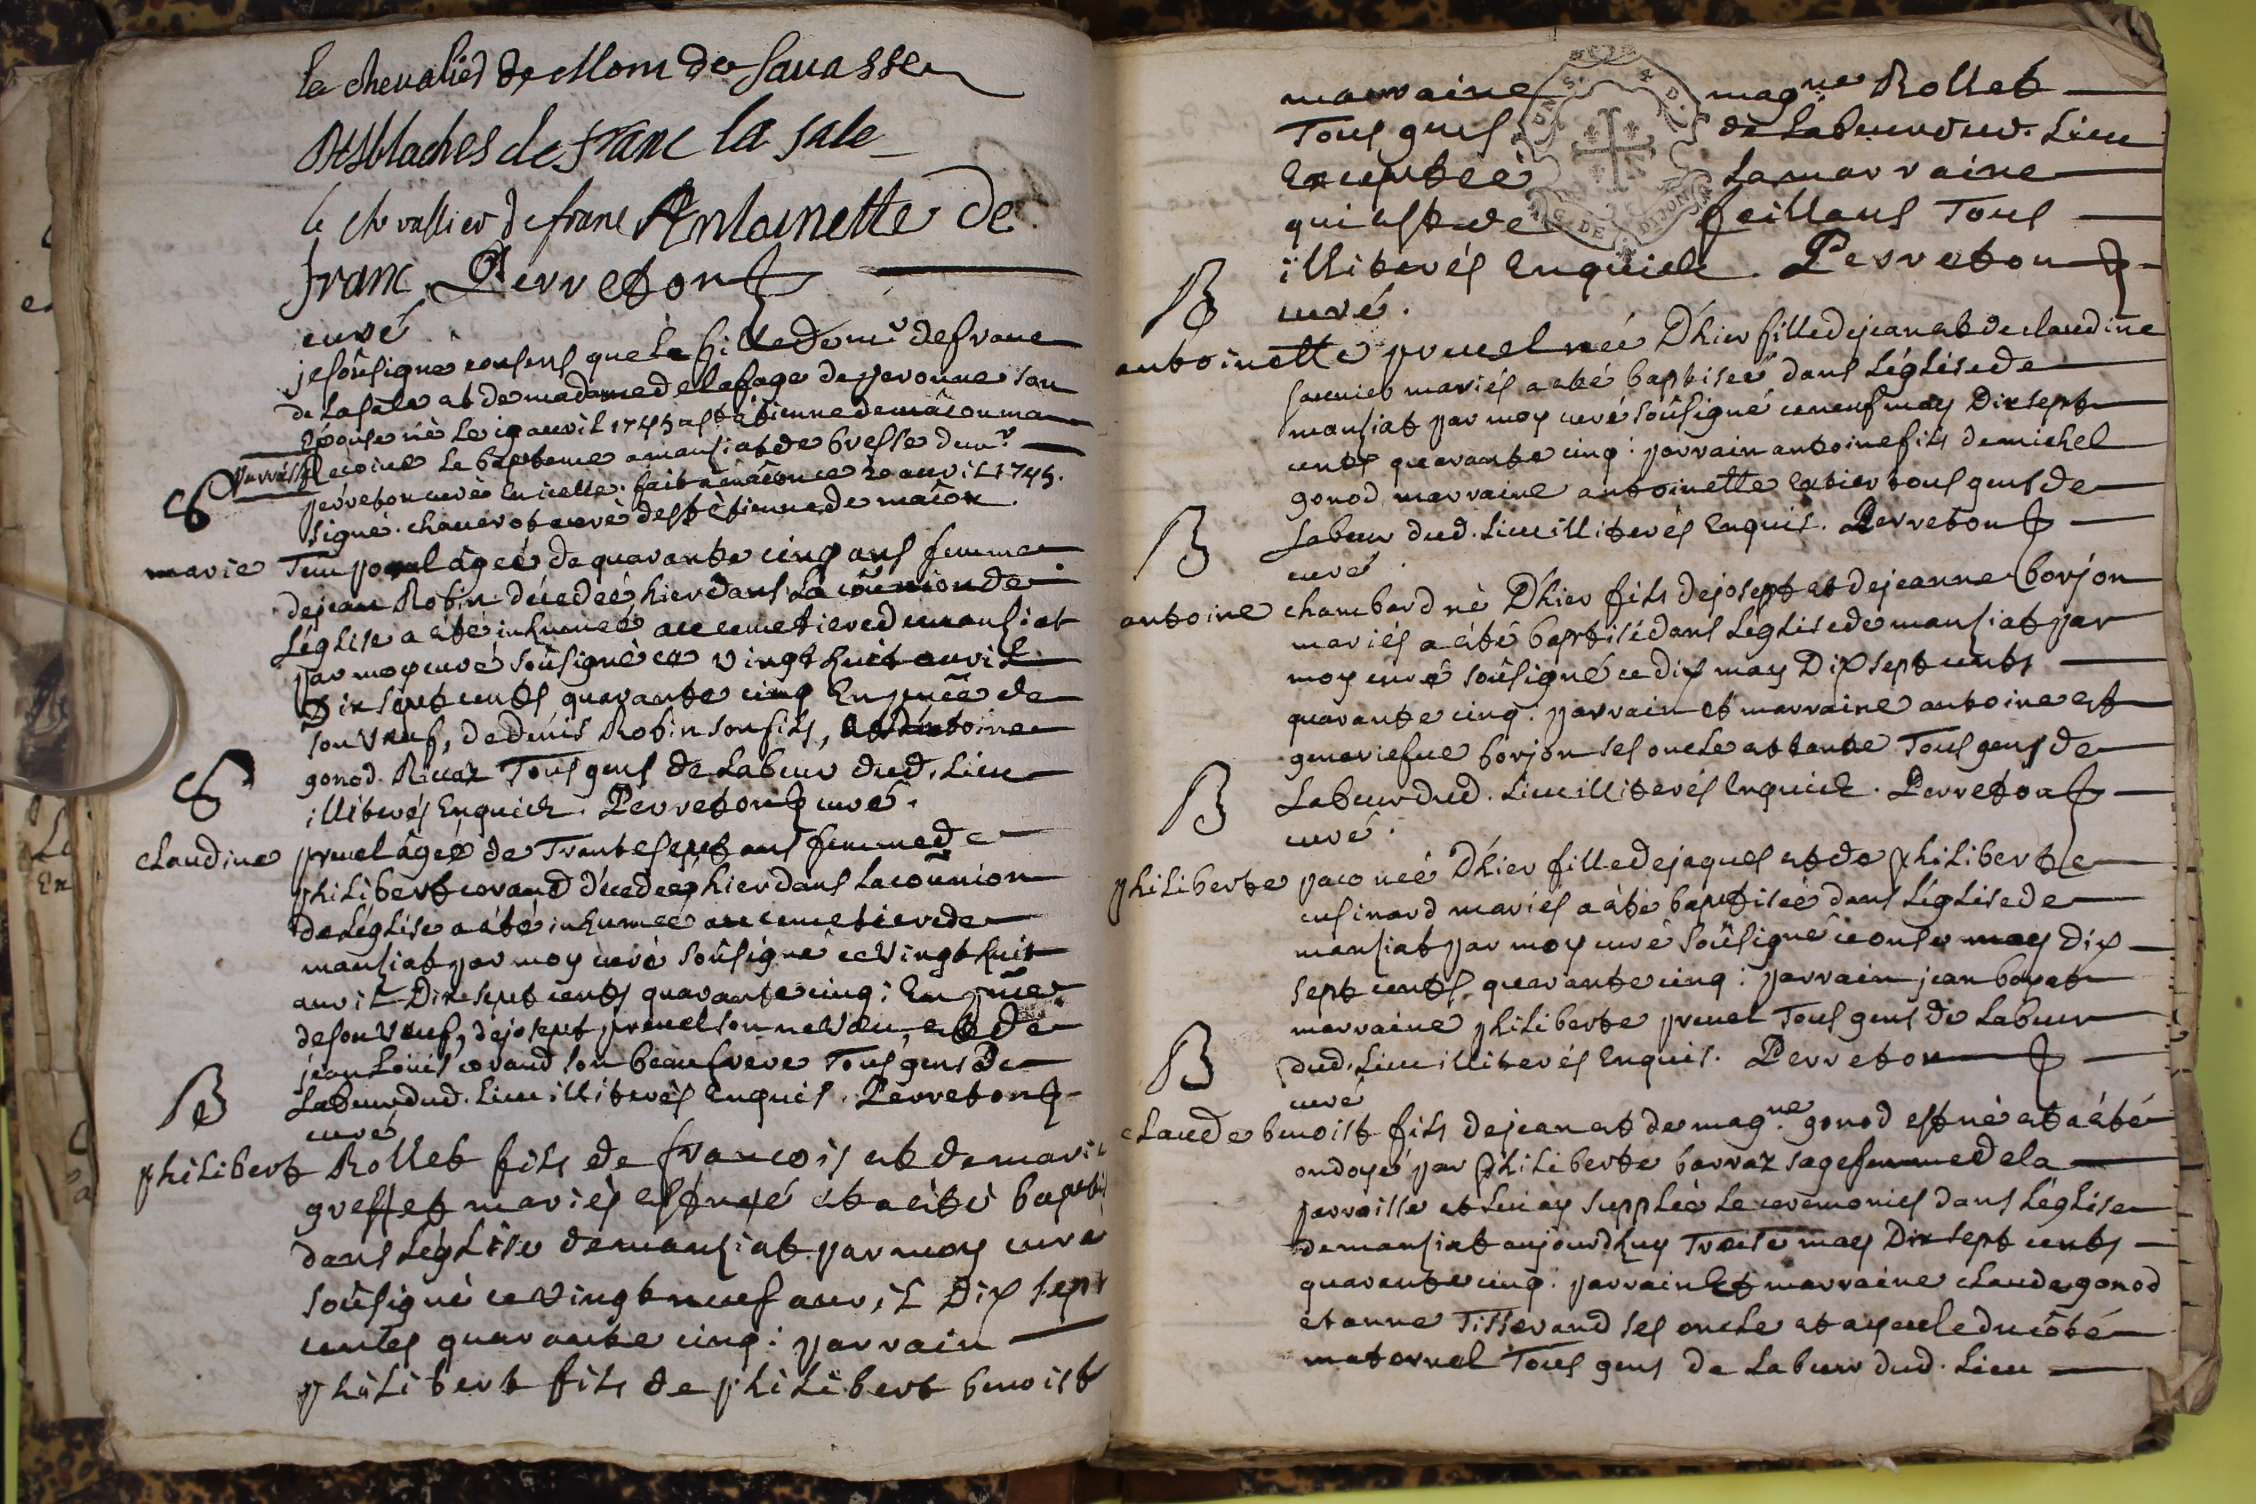 le chevalier de Mom de Savasse
Desblaches de franc la sale
le chevallier de franc Antoinette de
franc Perreton
curé
je soûsigné consens que la fille de mr. de franc
de la sale et de madame de la fage de peronne son
Epouse née le 19 avril 1745 a st êtienne de mâcon ma
parroisse Recoive le baptême a mansiat de bresse de mr.
perreton curé en icelle. fait à mâcon ce 20 avril 1745.
signé. curé de st êtienne de mâcon
S
marie Temporal âgée de quarante cinq ans femme
de jean Robin décedée hier dans la coûnion de
L'église a été inhumée au cemetiere de mansiat
par moy curé soûsigné ce vingt huit avril
Dix sept cents quarante cinq En pñce de
son veuf, de denis Robin son fils, et d'antoine
gonod Ruaz Tous gens de Labeur dud. Lieu
illiterés Enquick. Perreton curé.
S
claudine pruel âgée de Trante sept ans femme de
philibert corand décedée hier dans la coûnion
de L'église a été inhumée au cemetiere de
mansiat par moy curé soûsigné ce vingt huit
avril Dix sept cents quarante cinq : En pñce
de son veuf, de josept pruel son neveu, et de
jean Loüis corand son beaufrere Tous gens De
Labeur dud. Lieu illiterés Enquis. Perreton
curé
B
philibert Rollet fils de francois et de marie
greffet mariés est né et a été bapti
dans L'église de mansiat par moy curé
soûsigné ce vingt neuf avril Dix sept
cents quarante cinq : parrain
philibert fils de philibert benoist
marraine magne. Rollet
Tous gens de Labeur dud. Lieu
Exceptée La marraine
qui est de feillans Tous
illiterés Enquick. Perreton
curé.
B
antoinette pruel née D'hier fille de jean et de claudine
mariés a été baptisée dans L'église de
mansiat par moy curé soûsigné ce neuf may Dix sept
cents quarante cinq : parrain antoine fils de michel
gonod marraine antoinette Extier tous gens de
Labeur dud. Lieu illiterés Enquis. Perreton
curé.
B
antoine chambard né D'hier fils de josept et de jeanne borjon
mariés a été baptisé dans L'église de mansiat par
moy curé soûsigné ce dix may Dix sept cents
quarante cinq : parrain et marraine antoine et
geneviefue borjon ses oncle et tante Tous gens de
Labeur dud. Lieu illiterés Enquick. Perreton
curé.
B
philiberte paco née D'hier fille de jaques et de philiberte
cusinard mariés a été baptisée dans L'église de
mansiat par moy curé soûsigné ce onse may Dix
sept cents quarante cinq : parrain jean boyat
marraine philiberte pruel Tous gens de Labeur
dud. Lieu illiterés Enquis. Perreton
curé
B
claude benoist fils de jean et de magne. gonod est né et a été
ondoyé par philiberte barraz sage femme de la
parroisse et Luy ay supplée Le ceremonies dans L'église
de mansiat aujourdhuy Treise may Dix sept cents
quarante cinq : parrain Et marraine claude gonod
et anne Tisserand ses oncle et ayeule du côté
maternel Tous gens de Labeur dud. Lieu